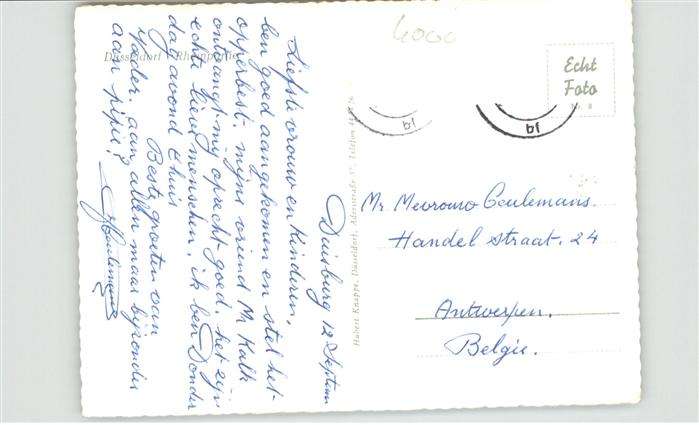 4000
Düsseldorf
Echt
Foto
Duisburg 12 Septem
Liefste vrouw en Kinderen,
ben goed aangekomen en stel het
opperbest. mijne vriend Mr Kalk
ontvangt mij opracht goed, het zijn
echt lieve menschen, ik ben Donder
dag avond thuis
Beste groeten van
Vader. aan allen maar bijzonder
aan pipie!
Ceulemans
Hubert Knappe, Düsseldorf,
Mr. Mevrouw Ceulemans.
Handel straat. 24
Antwerpen.
Belgie.